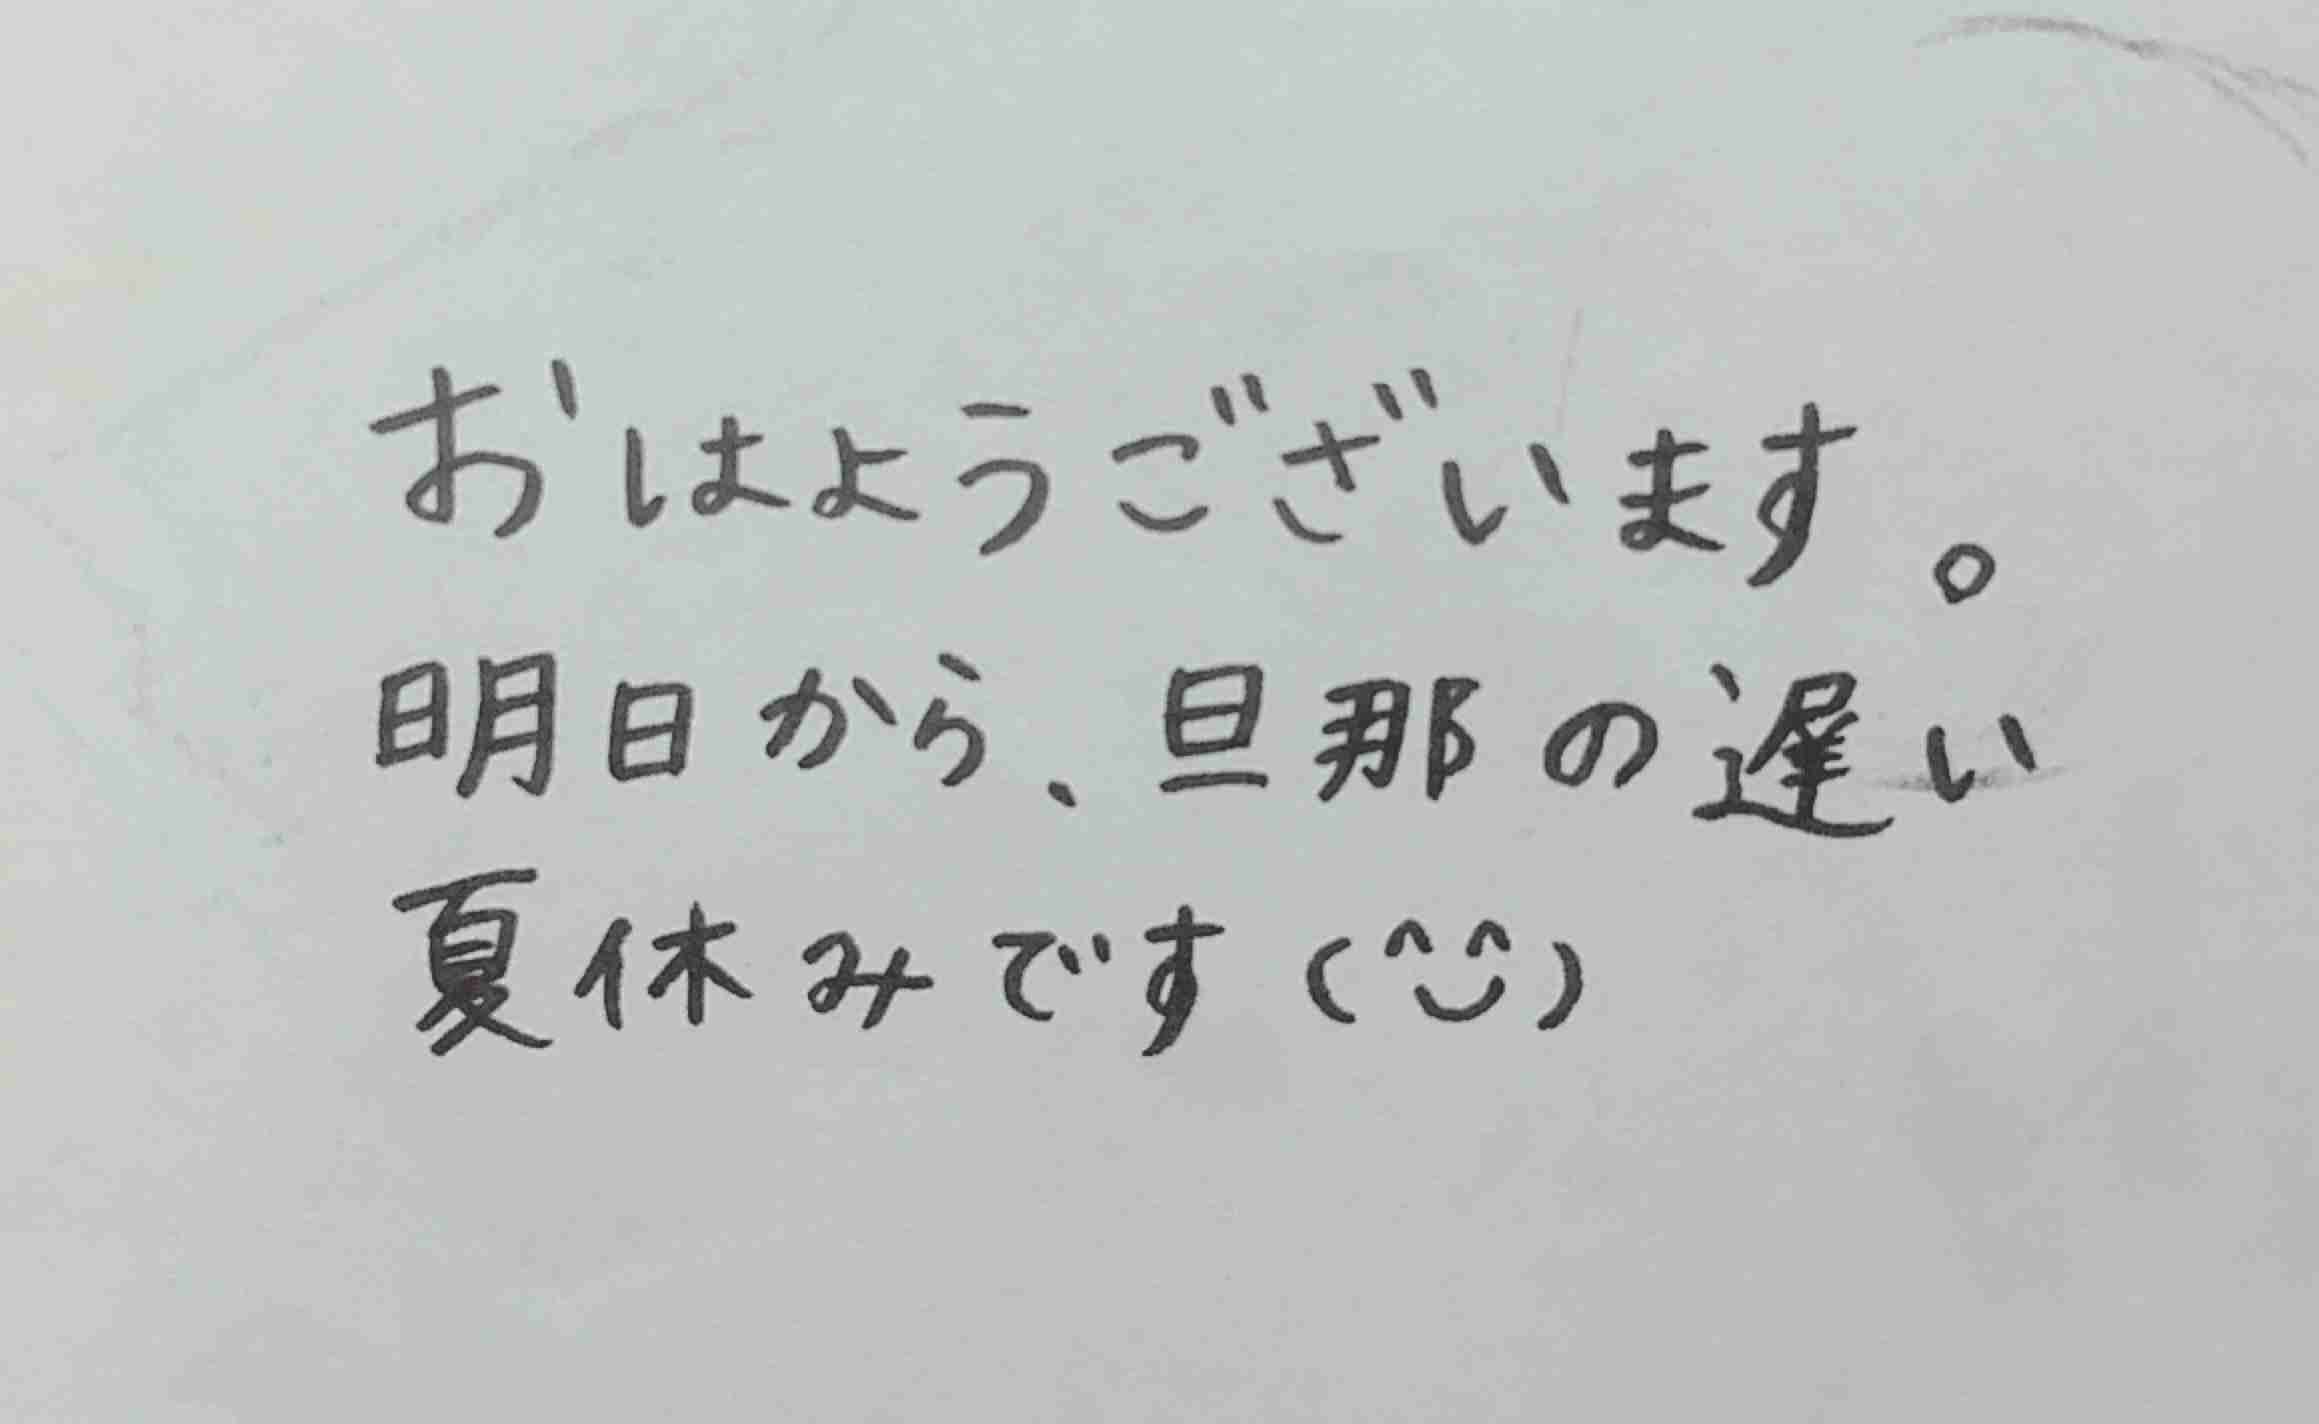 おはようございます。
明日から、旦那の遅い
夏休みです(^◡^)